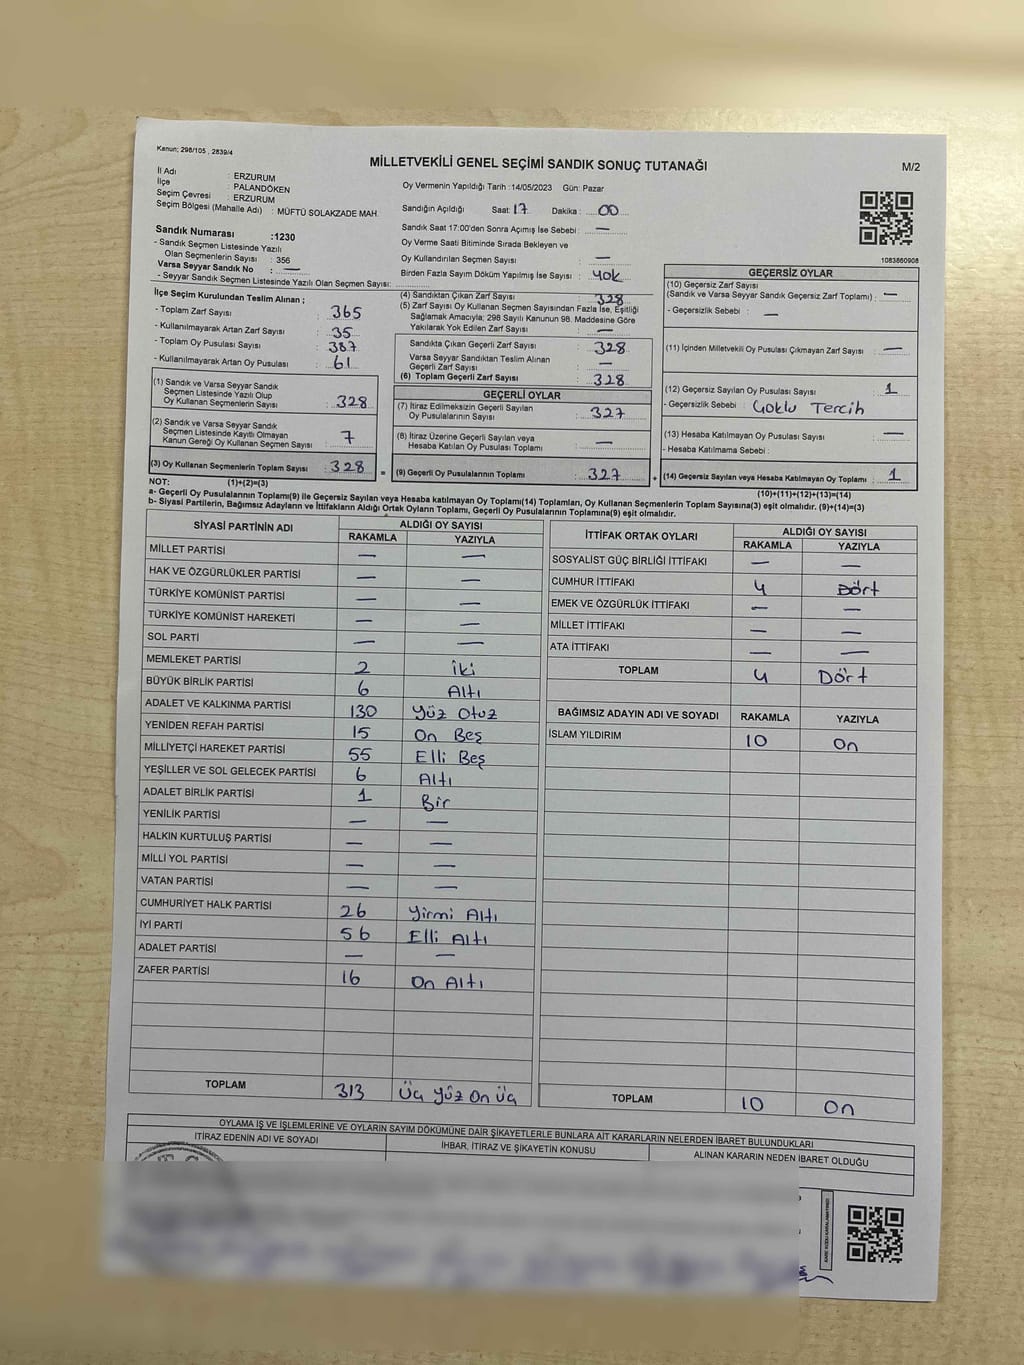 Kanun; 298/105 , 2839/4
MİLLETVEKİLİ GENEL SEÇİMİ SANDIK SONUÇ TUTANAĞI
M/2
İl Adı : ERZURUM
İlçe : PALANDÖKEN
Seçim Çevresi : ERZURUM
Seçim Bölgesi (Mahalle Adı) : MÜFTÜ SOLAKZADE MAH.
Sandık Numarası :1230
- Sandık Seçmen Listesinde Yazılı
Olan Seçmenlerin Sayısı : 356
Varsa Seyyar Sandık No : —
- Seyyar Sandık Seçmen Listesinde Yazılı Olan Seçmen Sayısı:
Oy Vermenin Yapıldığı Tarih :14/05/2023 Gün: Pazar
Sandığın Açıldığı Saat: 17 Dakika : 00
Sandık Saat 17:00'den Sonra Açımış İse Sebebi : —
Oy Verme Saati Bitiminde Sırada Bekleyen ve
Oy Kullandırılan Seçmen Sayısı : —
Birden Fazla Sayım Döküm Yapılmış İse Sayısı : yok
1083860908
İlçe Seçim Kurulundan Teslim Alınan ;
- Toplam Zarf Sayısı : 365
- Kullanılmayarak Artan Zarf Sayısı : 35
- Toplam Oy Pusulası Sayısı : 387
- Kullanılmayarak Artan Oy Pusulası : 61
(1) Sandık ve Varsa Seyyar Sandık
Seçmen Listesinde Yazılı Olup
Oy Kullanan Seçmenlerin Sayısı : 328
(2) Sandık ve Varsa Seyyar Sandık
Seçmen Listesinde Kayıtlı Olmayan
Kanun Gereği Oy Kullanan Seçmen Sayısı : 7
(3) Oy Kullanan Seçmenlerin Toplam Sayısı : 328
(4) Sandıktan Çıkan Zarf Sayısı : 328
(5) Zarf Sayısı Oy Kullanan Seçmen Sayısından Fazla İse, Eşitliği
Sağlamak Amacıyla; 298 Sayılı Kanunun 98. Maddesine Göre
Yakılarak Yok Edilen Zarf Sayısı : —
Sandıkta Çıkan Geçerli Zarf Sayısı : 328
Varsa Seyyar Sandıktan Teslim Alınan
Geçerli Zarf Sayısı : —
(6) Toplam Geçerli Zarf Sayısı : 328
GEÇERLİ OYLAR
(7) İtiraz Edilmeksizin Geçerli Sayılan
Oy Pusulalarının Sayısı : 327
(8) İtiraz Üzerine Geçerli Sayılan veya
Hesaba Katılan Oy Pusulası Toplamı : —
= (9) Geçerli Oy Pusulalarının Toplamı : 327 +
GEÇERSİZ OYLAR
(10) Geçersiz Zarf Sayısı
(Sandık ve Varsa Seyyar Sandık Geçersiz Zarf Toplamı) : —
- Geçersizlik Sebebi : —
(11) İçinden Milletvekili Oy Pusulası Çıkmayan Zarf Sayısı : —
(12) Geçersiz Sayılan Oy Pusulası Sayısı : 1
- Geçersizlik Sebebi : Çoklu Tercih
(13) Hesaba Katılmayan Oy Pusulası Sayısı : —
- Hesaba Katılmama Sebebi :
(14) Geçersiz Sayılan veya Hesaba Katılmayan Oy Toplamı : 1
NOT: (1)+(2)=(3)
(10)+(11)+(12)+(13)=(14)
a- Geçerli Oy Pusulalarının Toplamı(9) ile Geçersiz Sayılan veya Hesaba katılmayan Oy Toplamı(14) Toplamları, Oy Kullanan Seçmenlerin Toplam Sayısına(3) eşit olmalıdır. (9)+(14)=(3)
b- Siyasi Partilerin, Bağımsız Adayların ve İttifakların Aldığı Ortak Oyların Toplamı, Geçerli Oy Pusulalarının Toplamına(9) eşit olmalıdır.
SİYASİ PARTİNİN ADI ALDIĞI OY SAYISI
RAKAMLA YAZIYLA
MİLLET PARTİSİ — —
HAK VE ÖZGÜRLÜKLER PARTİSİ — —
TÜRKİYE KOMÜNİST PARTİSİ — —
TÜRKİYE KOMÜNİST HAREKETİ — —
SOL PARTİ — —
MEMLEKET PARTİSİ 2 iki
BÜYÜK BİRLİK PARTİSİ 6 Altı
ADALET VE KALKINMA PARTİSİ 130 Yüz Otuz
YENİDEN REFAH PARTİSİ 15 On Beş
MİLLİYETÇİ HAREKET PARTİSİ 55 Elli Beş
YEŞİLLER VE SOL GELECEK PARTİSİ 6 Altı
ADALET BİRLİK PARTİSİ 1 Bir
YENİLİK PARTİSİ — —
HALKIN KURTULUŞ PARTİSİ — —
MİLLİ YOL PARTİSİ — —
VATAN PARTİSİ — —
CUMHURİYET HALK PARTİSİ 26 Yirmi Altı
İYİ PARTİ 56 Elli Altı
ADALET PARTİSİ — —
ZAFER PARTİSİ 16 On Altı
TOPLAM 313 Üç Yüz On Üç
İTTİFAK ORTAK OYLARI ALDIĞI OY SAYISI
RAKAMLA YAZIYLA
SOSYALİST GÜÇ BİRLİĞİ İTTİFAKI — —
CUMHUR İTTİFAKI 4 Dört
EMEK VE ÖZGÜRLÜK İTTİFAKI — —
MİLLET İTTİFAKI — —
ATA İTTİFAKI — —
TOPLAM 4 Dört
BAĞIMSIZ ADAYIN ADI VE SOYADI RAKAMLA YAZIYLA
İSLAM YILDIRIM 10 On
TOPLAM 10 On
OYLAMA İŞ VE İŞLEMLERİNE VE OYLARIN SAYIM DÖKÜMÜNE DAİR ŞİKAYETLERLE BUNLARA AİT KARARLARIN NELERDEN İBARET BULUNDUKLARI
İTİRAZ EDENİN ADI VE SOYADI İHBAR, İTİRAZ VE ŞİKAYETİN KONUSU ALINAN KARARIN NEDEN İBARET OLDUĞU